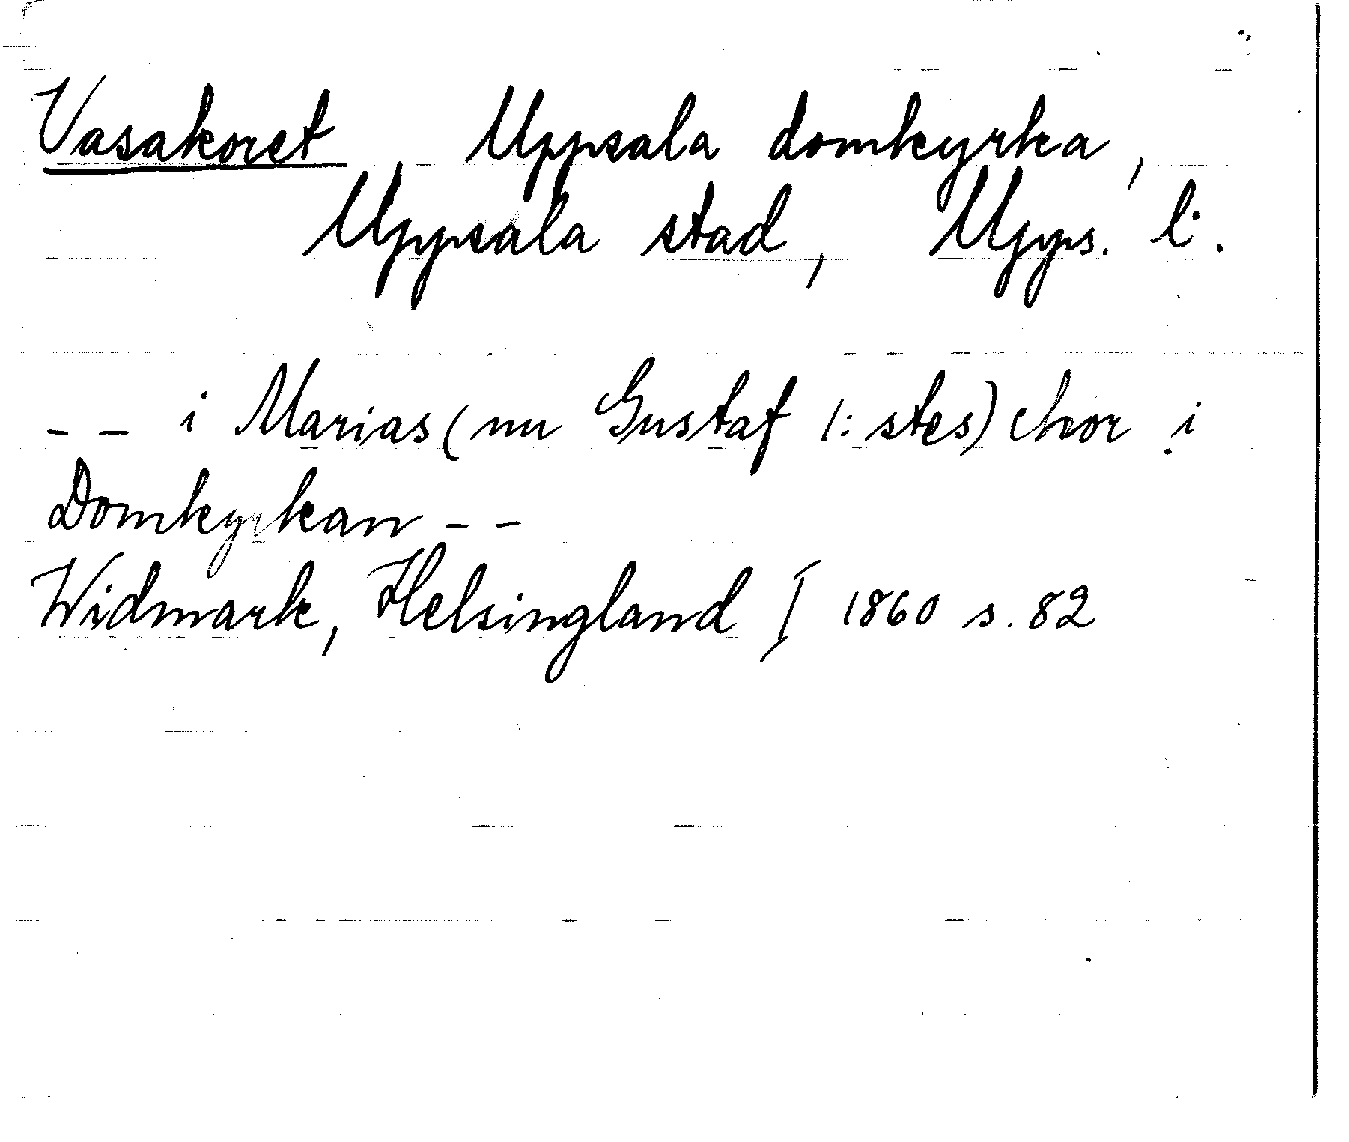 Vasakoret, Uppsala domkyrka,
Uppsala stad, Upps. l.
-- i Marias (nu Gustaf 1:stes) chor i
Domkyrkan --
Widmark, Helsingland I 1860 s. 82